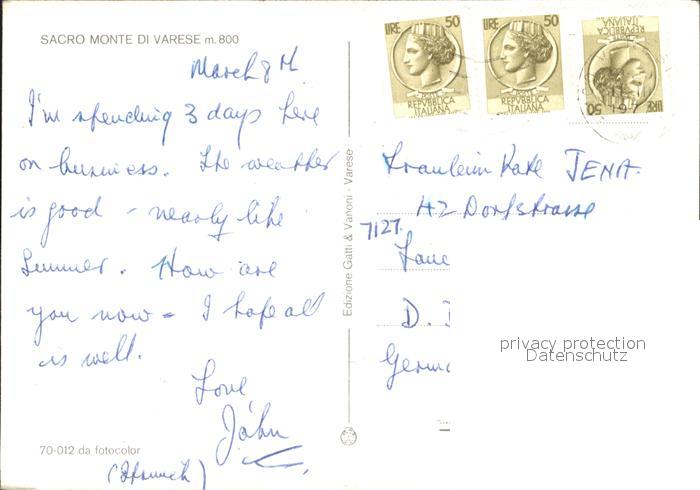 SACRO MONTE DI VARESE m. 800
March 8
I'm spending 3 days here
on business. The weather
is good - nearly like
Summer. How are
you now - I hope all
is well.
Love
John
70-012 da fotocolor
Edizione Gatti & Vanoni - Varese
LIRE 50
REPVBBLICA
ITALIANA
LIRE 50
REPVBBLICA
ITALIANA
LIRE 50
REPVBBLICA
ITALIANA
Fraulein Kate JENA.
42 Dorfstrasse
7127.
D.
Germ
privacy protection
Datenschutz